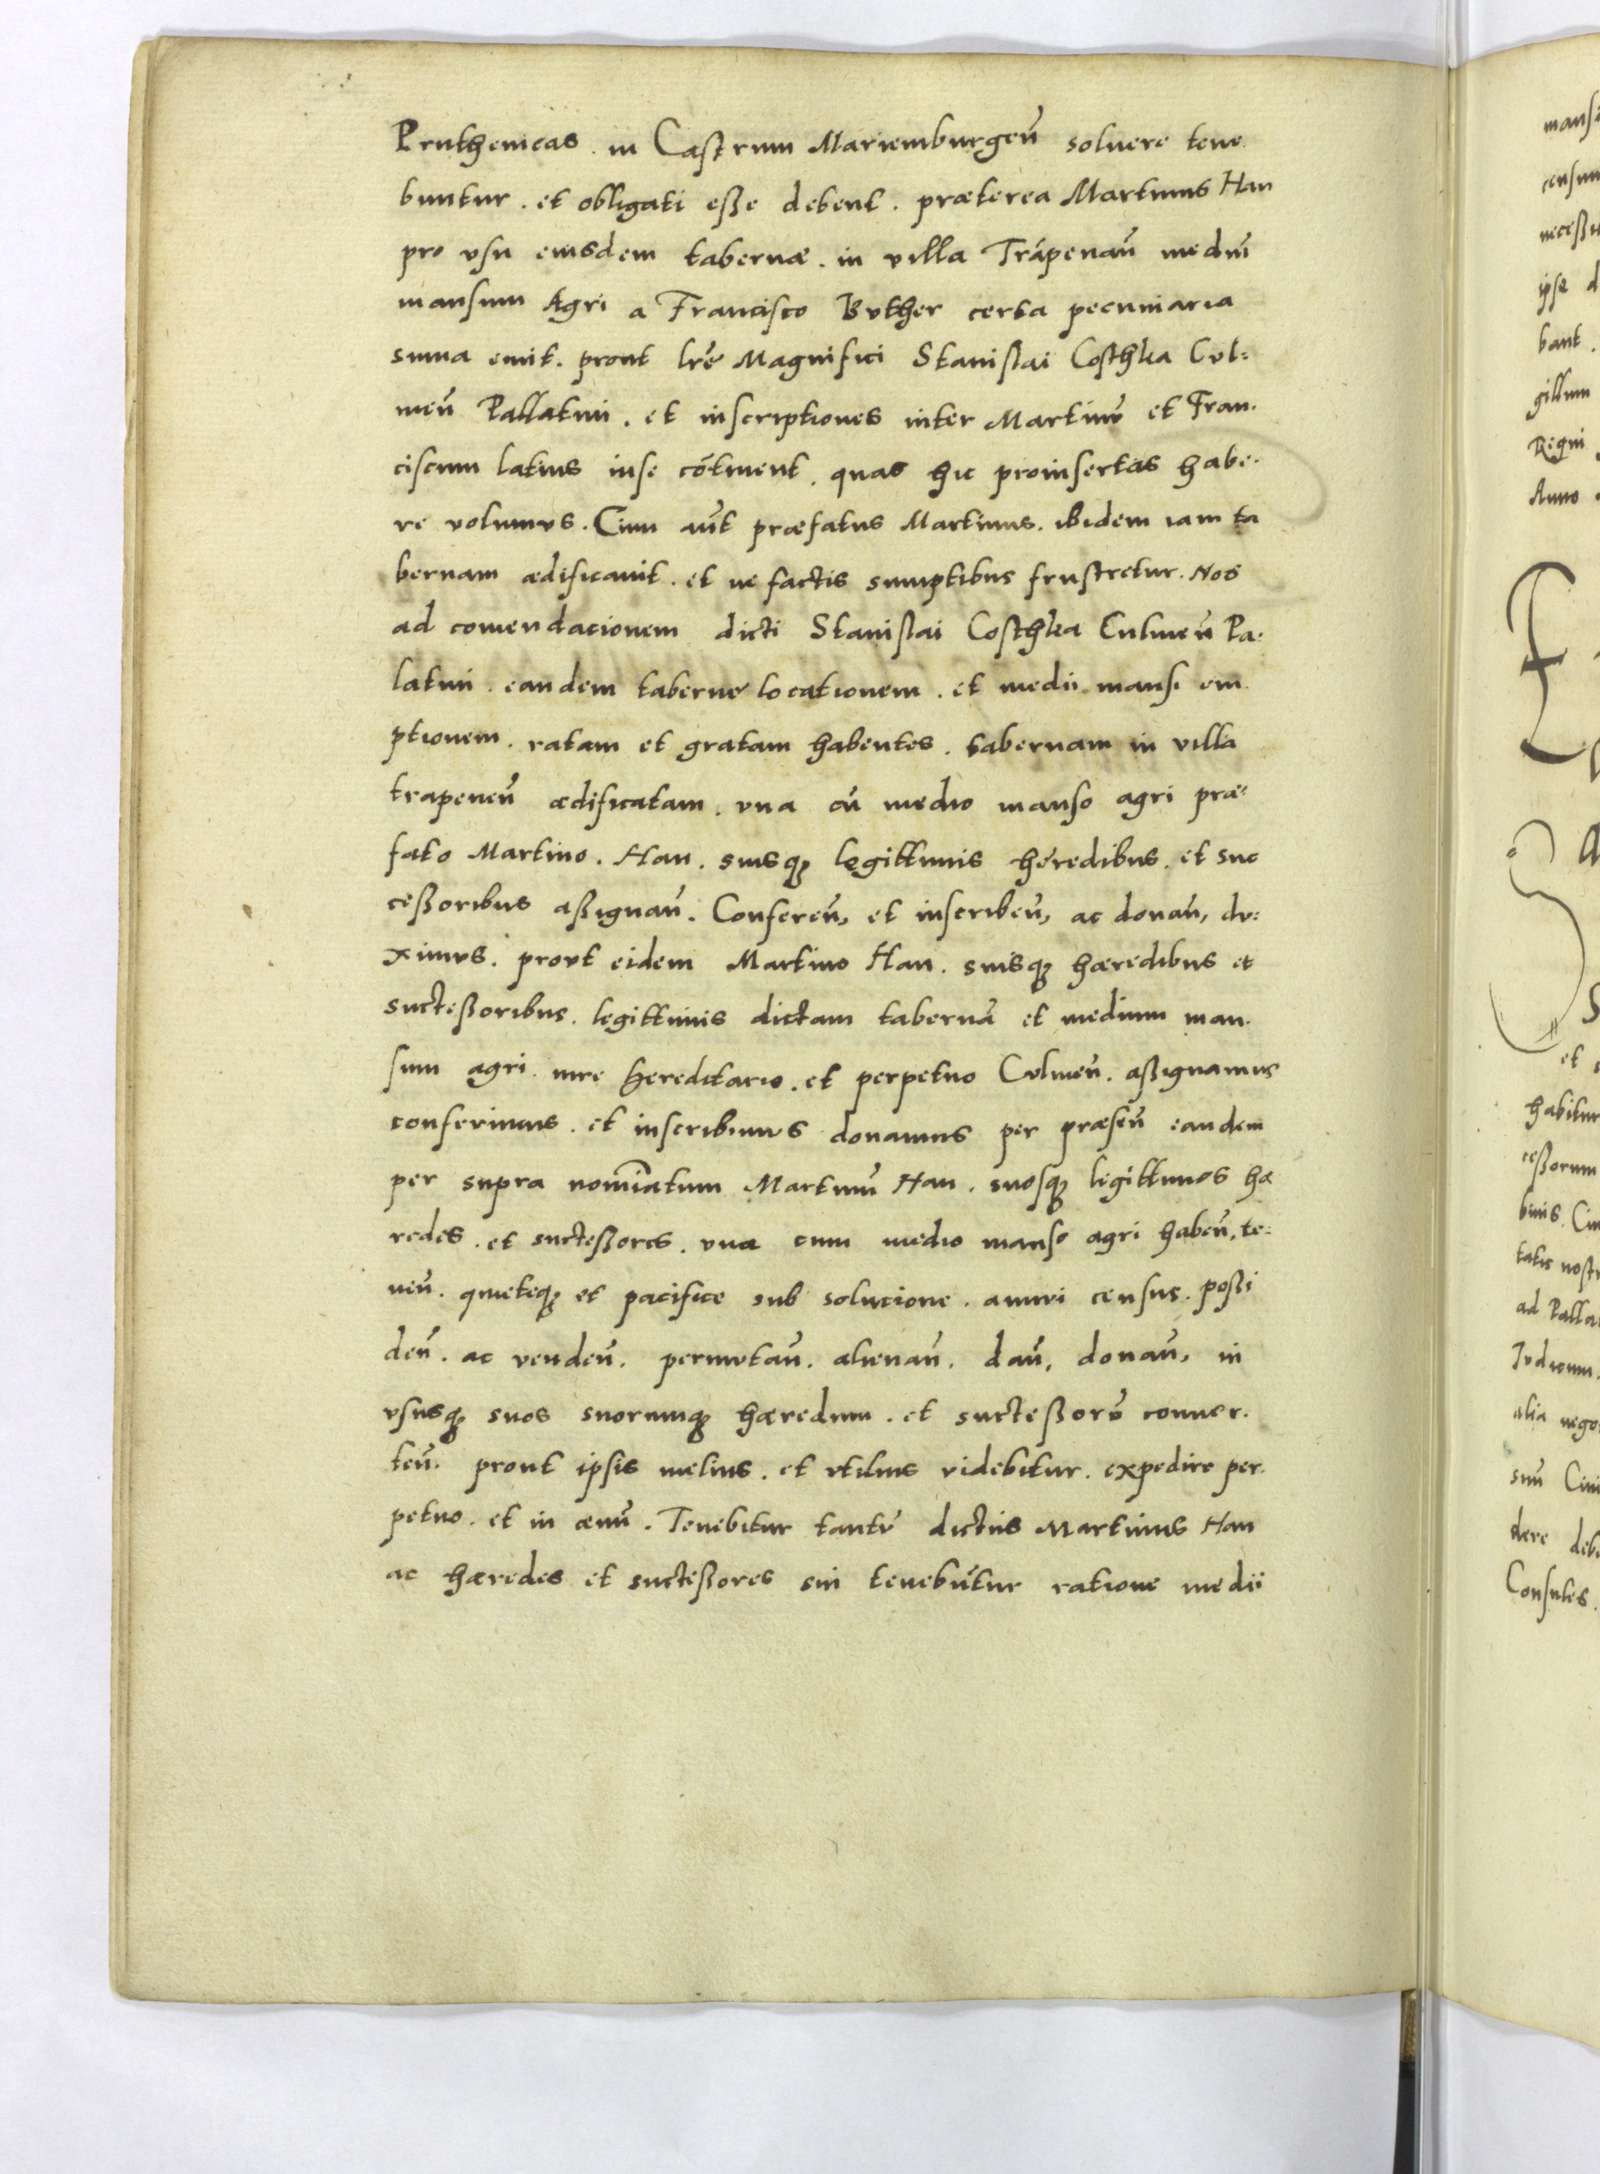 Pruthenicas. in Castrum Mariemburgen̄ soluere tene
buntur. et obligati eße debent. præterea Martinus Han
pro vsu eiusdem tabernæ. in villa Trápenan̄ mediū
mansum Agri a Francisco Buther certa pecuniaria
suma emit. prout lr̃e Magnifici Stanislai Costhka Cul:
men̄ Pallatini. et inscriptiones inter Martinū et Fran.
ciscum latius inse cōtinent. quas hic proinsertas habe.
re volumus. Cum aūt præfatus Martinus. ibidem iam ta
bernam ædificauit. et ne factis sumptibus frustretur. Nos
ad comendacionem dicti Stanislai Costhka Culmen̄ Pa.
latini. eandem taberne locationem. et medii mansi em
ptionem. ratam et gratam habentes. tabernam in villa
trapenen̄ ædificatam. vna cū medio manso agri præ:
fato Martino. Han. suisqꝫ legittimis heredibus. et suc
ceßoribus aßignan̄. Conferen̄, et inscriben̄, ac donan̄, du:
ximus. prout eidem Martino Han. suisqꝫ hæredibus et
succeßoribus. legittimis dictam tabernā et medium man.
sum agri. iure hereditario. et perpetuo Culmen̄. aßignamus
conferimus. et inscribimus donamus per præsen̄ eandem
per supra nomīatum Martinū Han. suosqꝫ legittimos hæ
redes. et succeßores. vna cum medio manso agri haben̄, te:
nen̄. quieteqꝫ et pacifice sub solucione. annui census. poßi
den̄. ac venden̄. permutan̄. alienan̄. dan̄, donan̄, in
vsusqꝫ suos suorumqꝫ hæredum. et succeßorū conuer.
ten̄. prout ipsis melius. et vtilius videbitur. expedire per.
petuo. et in æuū. Tenebitur tantū dictus Martinus Han
ac hæredes et succeßores sui tenebuntur ratione medii
mansi
censum
ipse d
bant.
gillum
Regni
Anno
et
habitur
ceßorum
tatis nostr
ad Palla
alia nego
suū Ciui
dere deb
Consules.